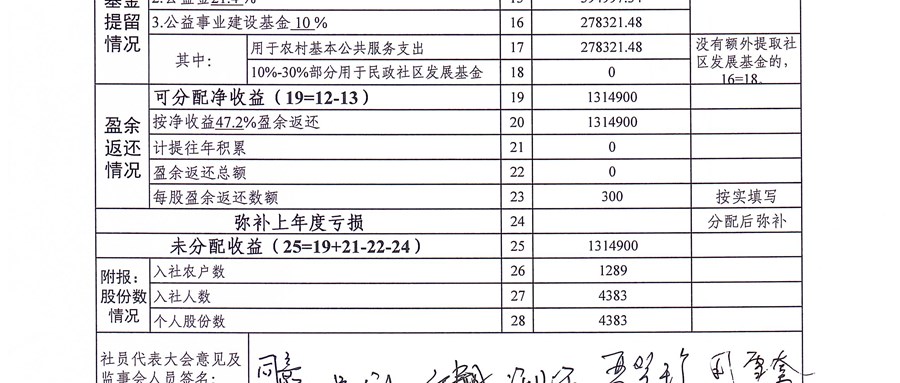 基金
提留
情况
3.公益事业建设基金 10 % 16 278321.48
其中： 用于农村基本公共服务支出 17 278321.48
10%-30%部分用于民政社区发展基金 18 0
没有额外提取社
区发展基金的，
16=18。
盈余
返还
情况
可分配净收益（19=12-13） 19 1314900
按净收益47.2%盈余返还 20 1314900
计提往年积累 21 0
盈余返还总额 22 0
每股盈余返还数额 23 300 按实填写
弥补上年度亏损 24 分配后弥补
未分配收益（25=19+21-22-24） 25 1314900
附报：
股份数
情况
入社农户数 26 1289
入社人数 27 4383
个人股份数 28 4383
社员代表大会意见及
监事会人员签名：
同意